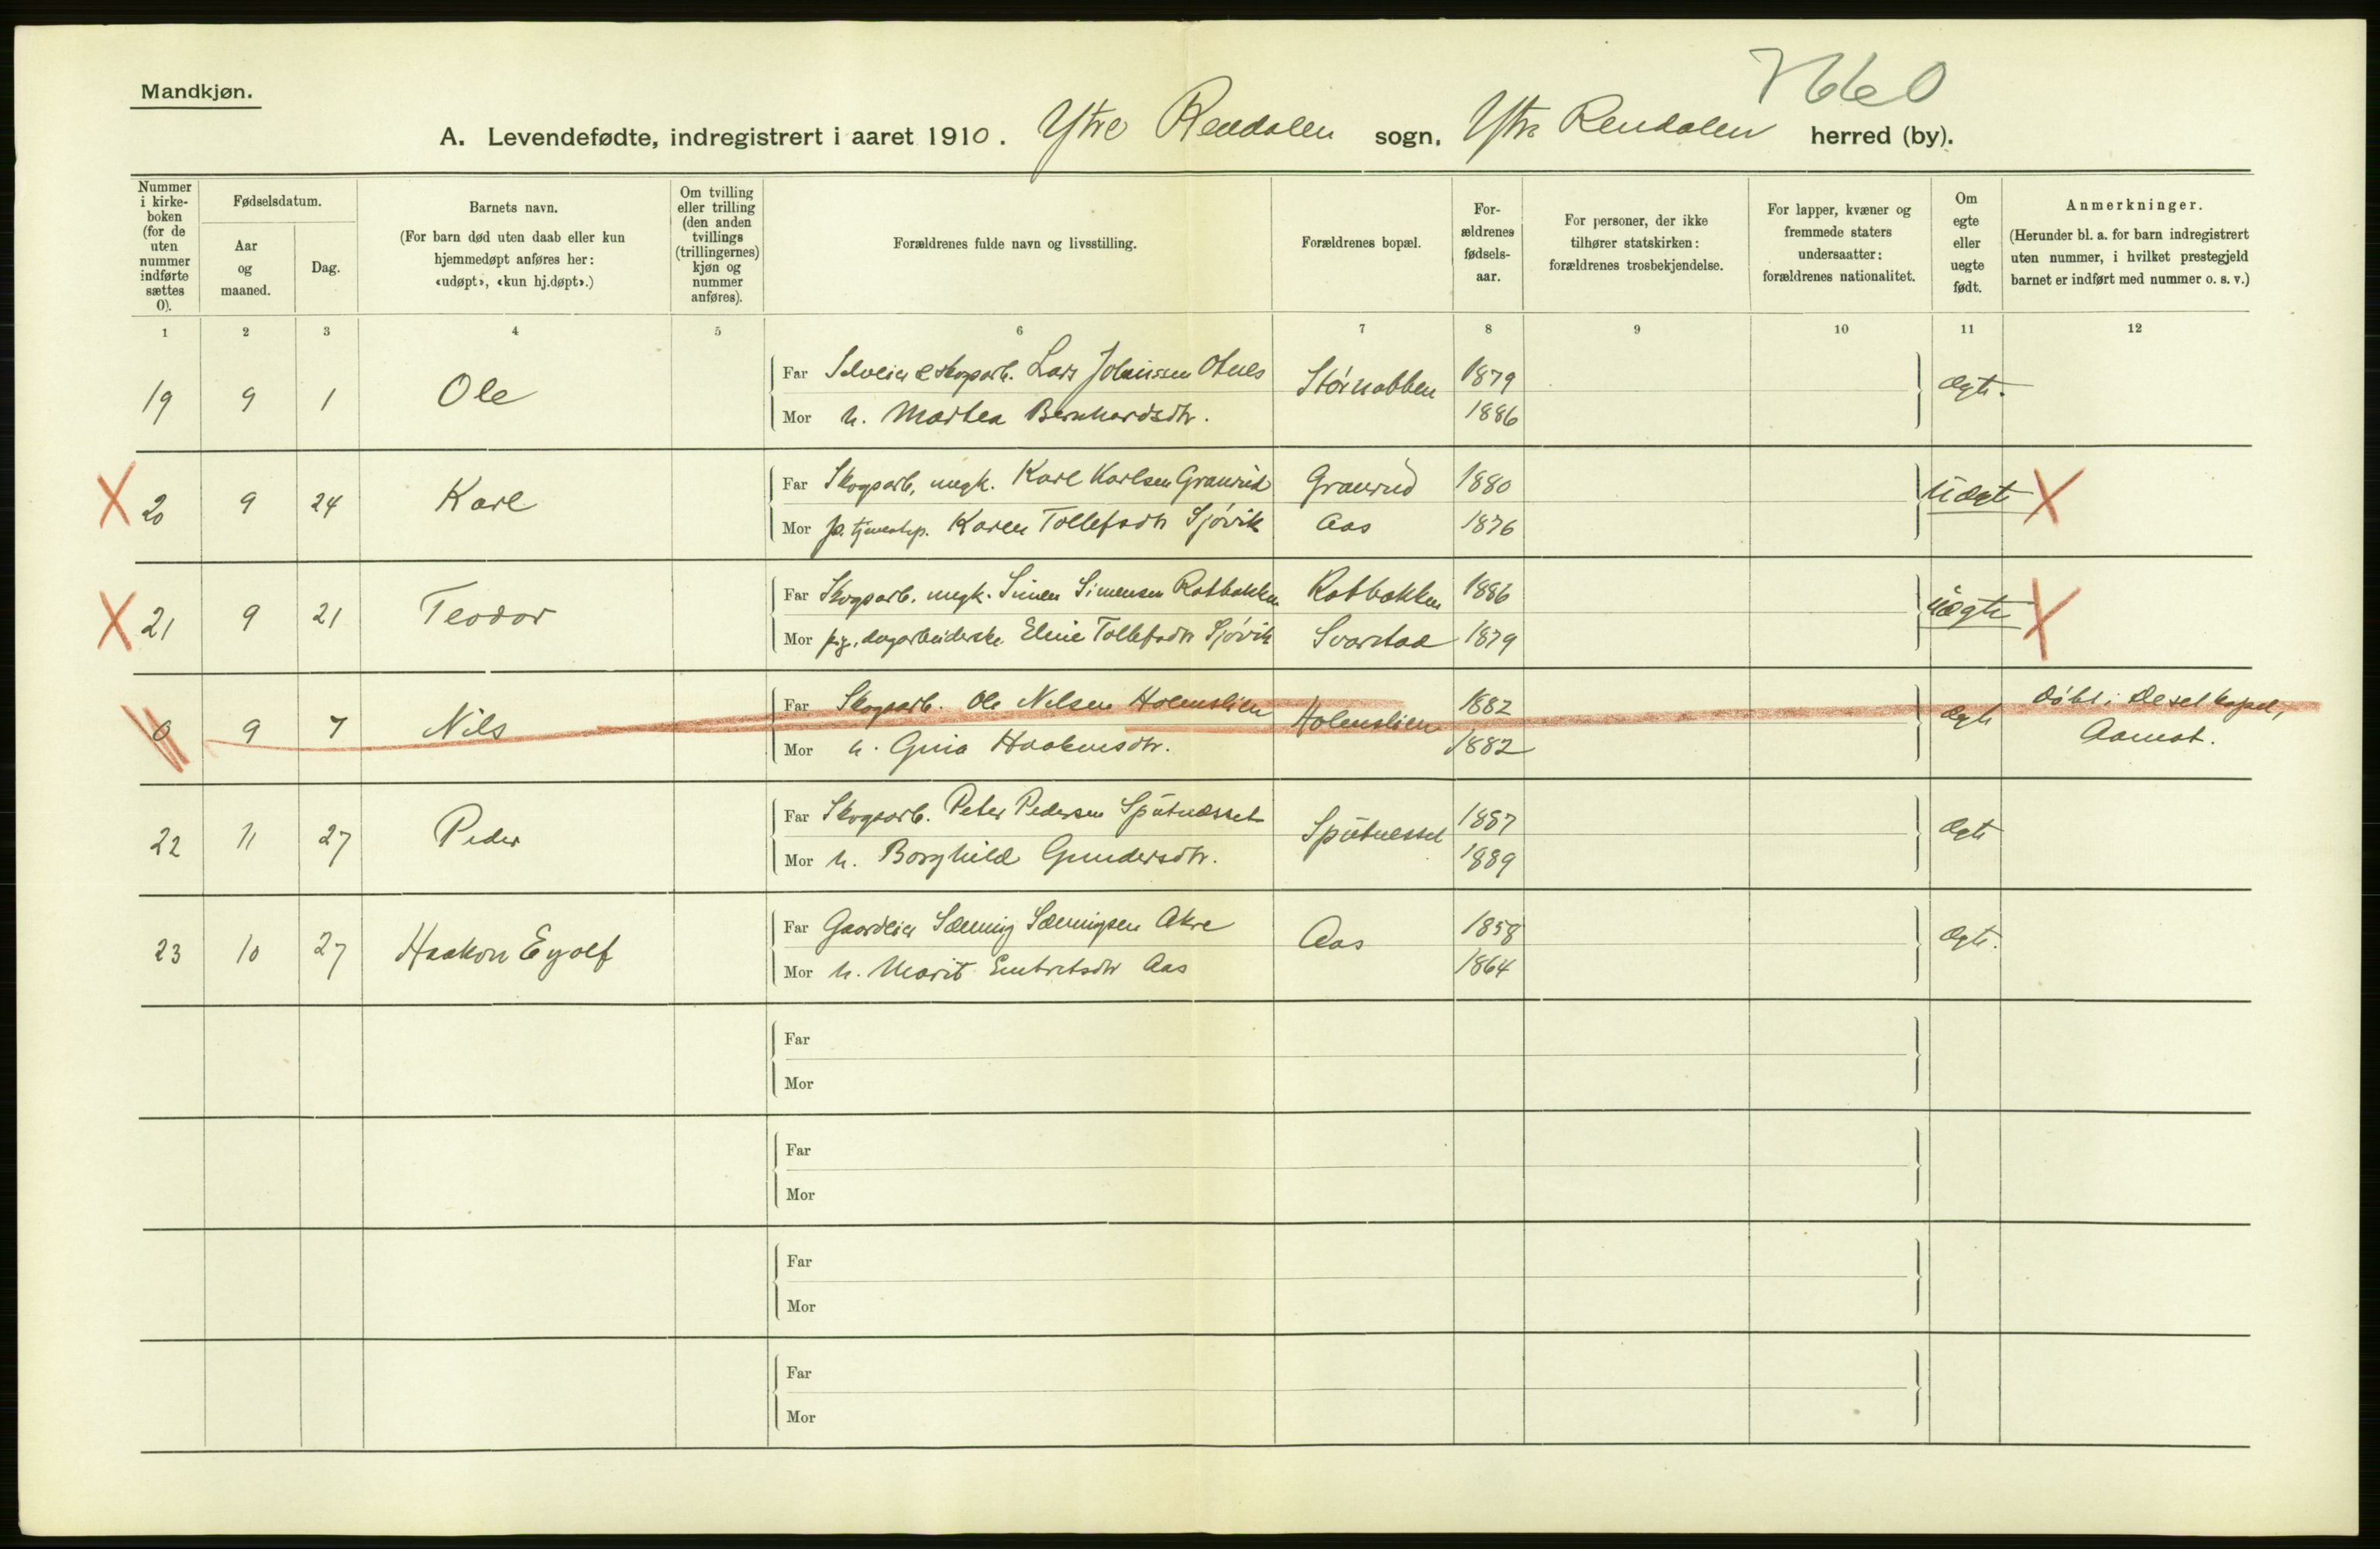 Mandkjøn.
A. Levendefødte, indregistrert i aaret 1910. Ytre Rendalen sogn, Ytre Rendalen herred (by).
Nummer i kirke-boken (for de uten nummer indførte sættes 0).
Fødselsdatum.
Aar og maaned.
Dag.
Barnets navn.
(For barn død uten daab eller kun hjemmedøpt anføres her: «udøpt», «kun hj.døpt».)
Om tvilling eller trilling (den anden tvillings (trillingernes) kjøn og nummer anføres).
Forældrenes fulde navn og livsstilling.
Forældrenes bopæl.
For-ældrenes fødsels-aar.
For personer, der ikke tilhører statskirken: forældrenes trosbekjendelse.
For lapper, kvæner og fremmede staters undersaatter: forældrenes nationalitet.
Om egte eller uegte født.
Anmerkninger.
(Herunder bl. a. for barn indregistrert uten nummer, i hvilket prestegjeld barnet er indført med nummer o. s. v.)
1 2 3 4 5 6 7 8 9 10 11 12
19 9 1 Ole Far Selveier & skogsarb. Lars Johanssen Otnes Störnabben 1879 ægte.
Mor h. Marthea Bernhardsdtr. 1886
X 20 9 24 Karl Far Skogsarb, ungk. Karl Karlsen Granrud Granrud 1880 Uægte X
Mor Karen Tollefsdtr Sjövik Aas 1876
X 21 9 21 Teodor Far Skogsarb. ungk. Simen Simensen Rotbakken Rotbakken 1886 uægte X
Mor pig. dagarbeiderske Eline Tollefsdtr Sjövik Svarstad 1879
0 9 7 Nils Far Skogsarb. Ole Nilsen Holmslien Holmslien 1882 ægte Döbt i Deset kapel,
Mor h. Gina Haakensdtr. 1882 Aamot.
22 11 27 Peder Far Skogsarb. Peter Pedersen Spütnæsset Spütnesset 1887 ægte
Mor h. Borghild Gundersdtr. 1889
23 10 27 Haakon Eyolf Far Gaardeier Sæming Sæmingsen Akre Aas 1858 ægte.
Mor h. Marit Embretsdtr Aas 1864
Far
Mor
Far
Mor
Far
Mor
Far
Mor